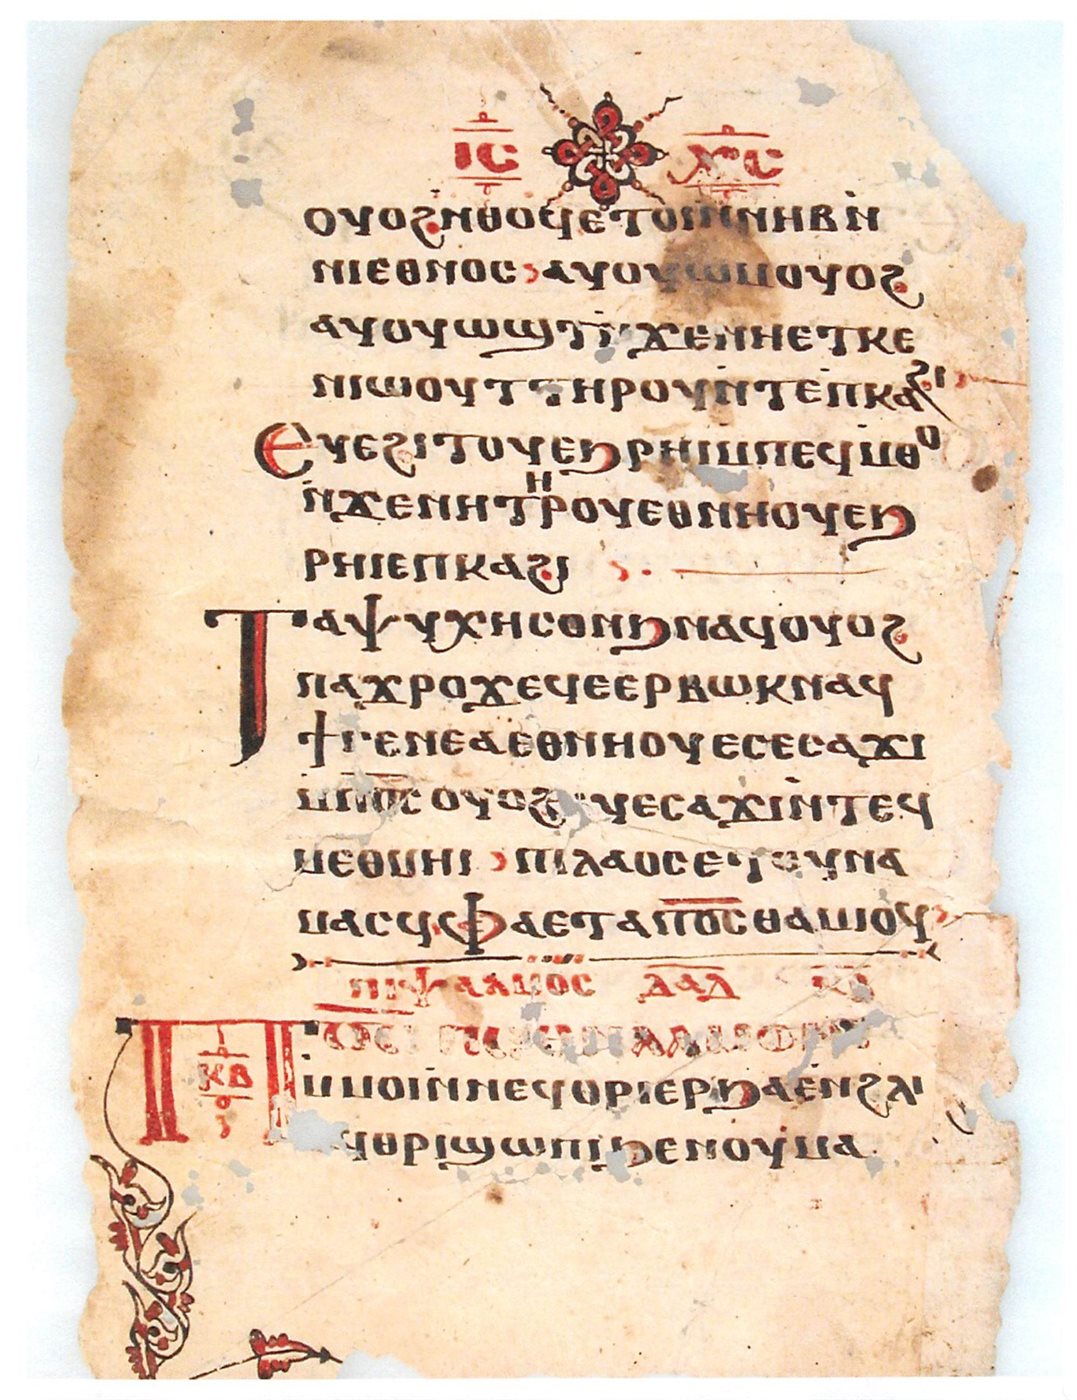 ⲒⲤ ⲬⲤ
ⲟⲩⲟϩⲛ̀ⲑⲟϥⲉⲧⲟⲓⲛ̀ⲛⲏⲃⲛ̀
ⲛⲓⲉⲑⲛⲟⲥ ⲁⲩⲟⲩⲱⲙⲟⲩⲟϩ
ⲁⲩⲟⲩⲱϣⲧ ϫⲉⲛⲏⲉⲧⲕⲉ
ⲛⲓⲱⲟⲩⲧⲧⲏⲣⲟⲩⲛ̀ⲧⲉⲡⲕⲁϩⲓ
Ⲉⲩⲉϩⲓⲧⲟⲩⲉϧⲣⲏⲓⲙⲡⲉϥⲙ̀ⲑⲟ
ⲛ̀ϫⲉⲛⲏⲧⲏⲣⲟⲩⲉⲑⲛⲏⲟⲩⲉϧ
ⲣⲏⲓⲉⲡⲕⲁϩⲓ
Ⲧⲁⲯⲩⲭⲏⲥⲟⲛϧⲛⲁϥⲟⲩⲟϩ
ⲡⲁϫⲣⲟϫⲉϥⲉⲉⲣⲃⲱⲕⲛⲁϥ
ϯⲅⲉⲛⲉⲁⲉⲑⲛⲏⲟⲩⲉⲥⲉⲥⲁϫⲓ
ⲙ̀ⲡ̅ⲟ̅ⲥ̅ ⲟⲩⲟϩ ⲩⲉⲥⲁϫⲓⲛ̀ⲧⲉϥ
ⲙⲉⲑⲙⲏⲓ ⲡⲓⲗⲁⲟⲥⲉⲧⲟⲩⲛⲁ
ⲙⲁⲥϥ ⲫⲁⲉⲧⲁⲡ̅ⲟ̅ⲥ̅ⲑⲁⲙⲓⲟϥ
ⲡⲓⲯⲁⲗⲙⲟⲥ ⲇ̅ⲁ̅ⲇ̅ ⲕ̅ⲃ̅
Ⲡ̅ⲟ̅ⲥ̅ ⲡⲉⲑⲛⲁⲁⲙⲟⲛⲓ
ⲕⲃ
ⲙ̀ⲙⲟⲓⲛ̀ⲛⲉϥⲑⲣⲓⲉⲣϧⲁⲉⲛϩⲗⲓ
ϥⲑⲣⲓϣⲱⲡⲓϧⲉⲛⲟⲩⲙⲁ